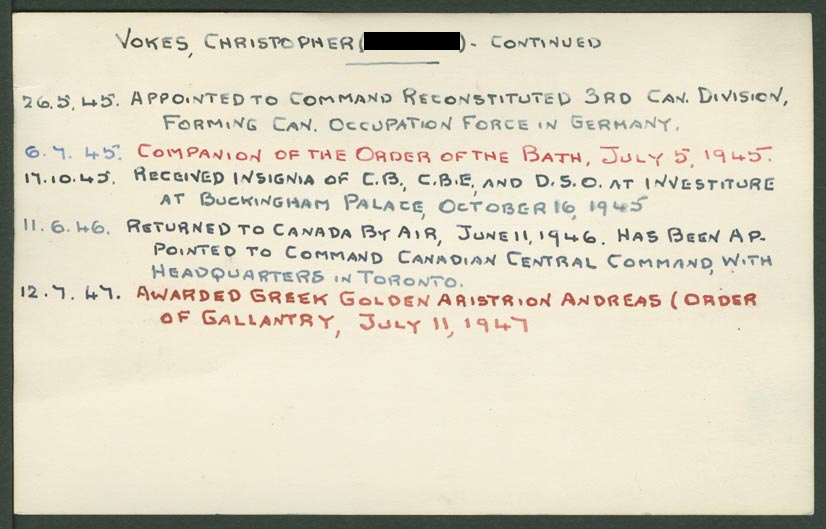 VOKES, CHRISTOPHER ( ) - CONTINUED
26.5.45. APPOINTED TO COMMAND RECONSTITUTED 3RD CAN. DIVISION,
FORMING CAN. OCCUPATION FORCE IN GERMANY.
6.7.45. COMPANION OF THE ORDER OF THE BATH, JULY 5, 1945.
17.10.45. RECEIVED INSIGNIA OF C.B., C.B.E, AND D.S.O. AT INVESTITURE
AT BUCKINGHAM PALACE, OCTOBER 16, 1945
11.6.46. RETURNED TO CANADA BY AIR, JUNE 11, 1946. HAS BEEN AP-
POINTED TO COMMAND CANADIAN CENTRAL COMMAND, WITH
HEADQUARTERS IN TORONTO.
12.7.47. AWARDED GREEK GOLDEN ARISTRION ANDREAS (ORDER
OF GALLANTRY, JULY 11, 1947